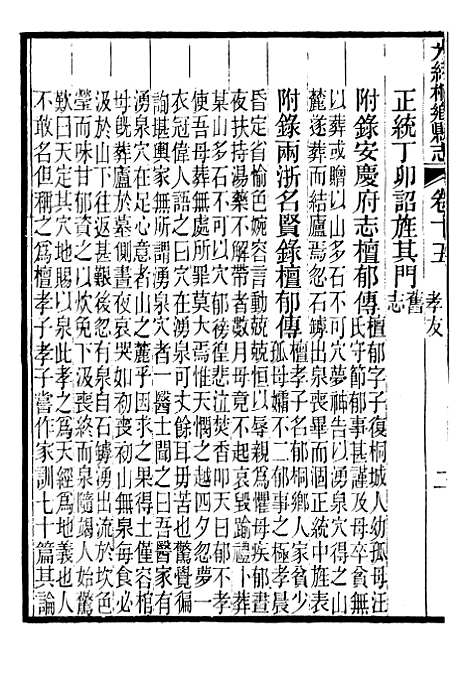 大經桐鄉縣志 卷十五 孝友 二
正統丁卯詔旌其門舊志
附錄安慶府志檀郁傳檀郁字子復桐城人幼孤母汪
氏守節郁事甚謹及母卒貧無
以葬或贈以山多石不可穴夢神告以湧泉穴得之山
麓遂葬而結廬焉忽石罅出泉喪畢而涸正統中旌表
附錄兩浙名賢錄檀郁傳檀孝子名郁桐鄉人家貧少
孤母孀不二郁事之極孝晨
昏定省愉色婉容言動兢兢恒以辱親為懼母疾郁晝
夜扶持湯藥不解帶者數月母竟不起哀毀踰禮卜葬
某山多石不可以穴郁徬徨悲泣焚香叩天曰郁不孝
使吾母葬無處所罪莫大焉惟天憫之越夕忽夢一
衣冠偉人語之曰穴湧泉可丈餘耳毋苦也驚覺徧
詢堪輿家無所湧泉穴者一醫士聞之曰吾醫家有
湧泉穴在足心意者山之麓乎因求之果得土僅容棺
母旣葬廬於墓哀哭如初喪山無泉每食必
汲於山下往返甚艱後忽有泉自石罅流出於坎
瑩而味甘郁資之以炊免下汲喪終而泉隨竭人始驚
歎曰天之孝之為天經為地義也人
不敢名但稱之為檀孝子孝子嘗作家訓七十篇其論